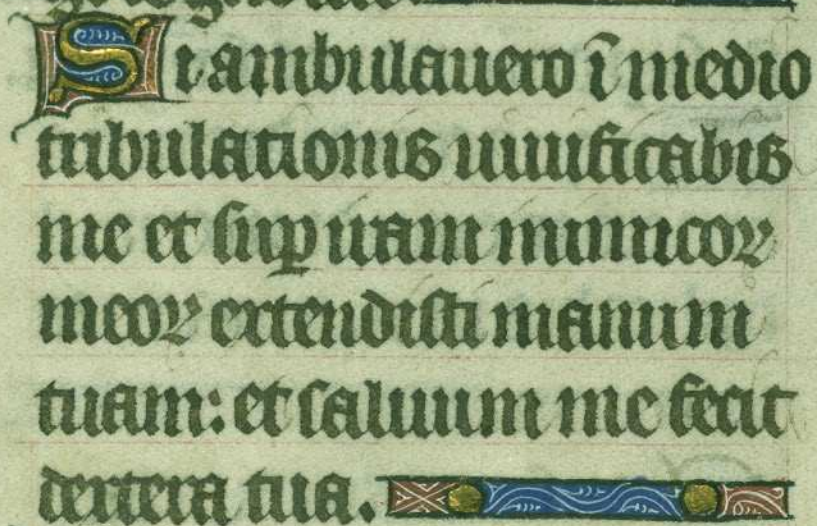 Si ambulauero ī medio
tribulationis uiuificabis
me et suꝑ iram inimicoꝝ
meoꝝ extendisti manum
tuam: et saluum me fecit
dextera tua.